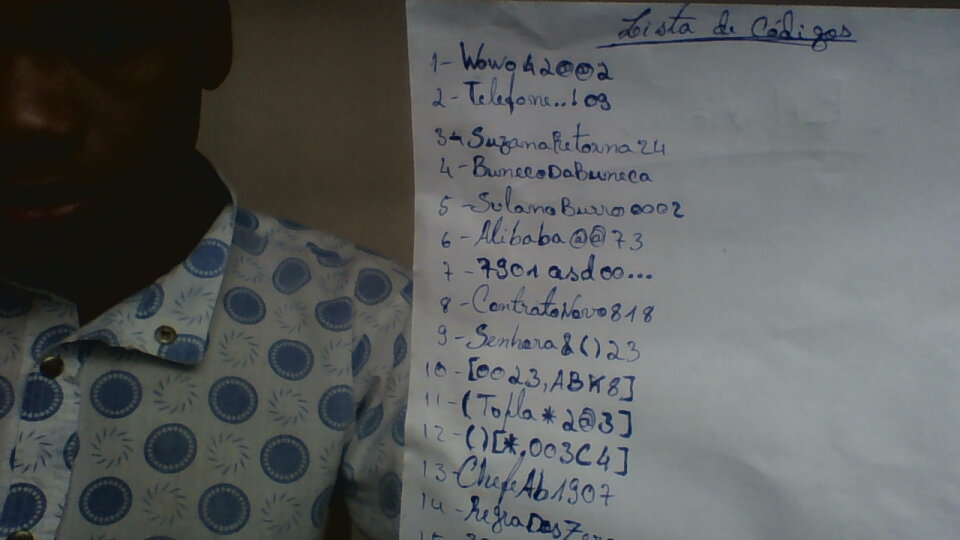 Lista de Códigos
1- Wowo42@@2
2- Telefone..!09
3- SuzanaRetorna24
4- BunecoDaBuneca
5- SolanoBurro0002
6- Alibaba@@73
7- 7901asd00...
8- ContratoNovo818
9- Senhora&()23
10- [0023,ABK8]
11- (Topla*2@3]
12- ()[*.003C4]
13- ChefeAb1907
14- RegraDos7
15-